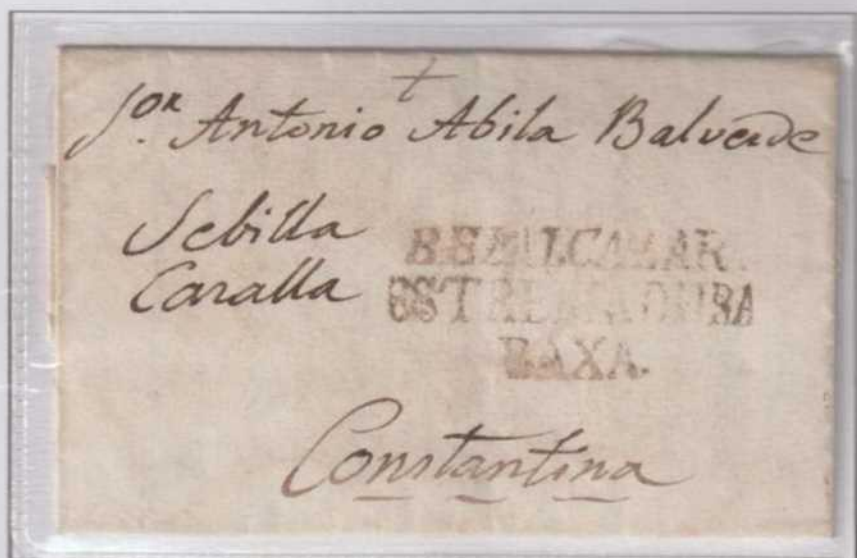 +
Sor. Antonio Abila Balverde
Sebilla
Caralla
BELALCAZAR.
ESTREMADURA
BAXA.
Constantina